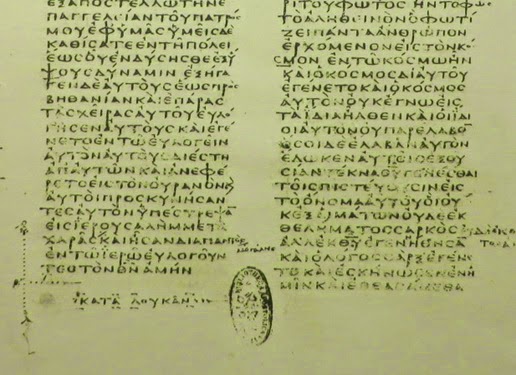 ΕΞΑΠΟΣΤΕΛΛΩΤΗΝΕ
ΠΑΓΓΕΛΕΙΑΝΤΟΥΠΑΤΡΟΣ
ΜΟΥΕΦΥΜΑΣΥΜΕΙΣΔΕ
ΚΑΘΙΣΑΤΕΕΝΤΗΠΟΛΕΙ
ΕΩΣΟΥΕΝΔΥΣΗΣΘΕΕΞΥ
ΨΟΥΣΔΥΝΑΜΙΝΕΞΗΓΑ
ΓΕΝΔΕΑΥΤΟΥΣΕΩΣΠΡΟΣ
ΒΗΘΑΝΙΑΝΚΑΙΕΠΑΡΑΣ
ΤΑΣΧΕΙΡΑΣΑΥΤΟΥΕΥΛΟ
ΓΗΣΕΝΑΥΤΟΥΣΚΑΙΕΓΕ
ΝΕΤΟΕΝΤΩΕΥΛΟΓΕΙΝ
ΑΥΤΟΝΑΥΤΟΥΣΔΙΕΣΤΗ
ΑΠΑΥΤΩΝΚΑΙΑΝΕΦΕ
ΡΕΤΟΕΙΣΤΟΝΟΥΡΑΝΟΝΚ
ΑΥΤΟΙΠΡΟΣΚΥΝΗΣΑΝ
ΤΕΣΑΥΤΟΝΥΠΕΣΤΡΕΨΑ
ΕΙΣΙΕΡΟΥΣΑΛΗΜΜΕΤΑ
ΧΑΡΑΣΚΑΙΗΣΑΝΔΙΑΠΑΝΤΟΣ
ΕΝΤΩΙΕΡΩΕΥΛΟΓΟΥΝ
ΤΕΣΤΟΝΘΝΑΜΗΝ
ΚΑΤΑ ΛΟΥΚΑΝ
ΡΙΤΟΥΦΩΤΟΣΗΝΤΟΦΩ
ΤΟΑΛΗΘΕΙΝΟΝΟΦΩΤΙ
ΖΕΙΠΑΝΤΑΑΝΘΡΩΠΟΝ
ΕΡΧΟΜΕΝΟΝΕΙΣΤΟΝΚΟ
ΣΜΟΝΕΝΤΩΚΟΣΜΩΗΝ
ΚΑΙΟΚΟΣΜΟΣΔΙΑΥΤΟΥ
ΕΓΕΝΕΤΟΚΑΙΟΚΟΣΜΟΣ
ΑΥΤΟΝΟΥΚΕΓΝΩΕΙΣ
ΤΑΙΔΙΑΗΛΘΕΝΚΑΙΟΙΙΔΙ
ΟΙΑΥΤΟΝΟΥΠΑΡΕΛΑΒΟ
ΟΣΟΙΔΕΕΛΑΒΑΝΑΥΤΟΝ
ΕΔΩΚΕΝΑΥΤΟΙΣΕΞΟΥ
ΣΙΑΝΤΕΚΝΑΘΥΓΕΝΕΣΘΑΙ
ΤΟΙΣΠΙΣΤΕΥΟΥΣΙΝΕΙΣ
ΤΟΟΝΟΜΑΑΥΤΟΥΟΙΟΥ
ΚΕΞΑΙΜΑΤΩΝΟΥΔΕΕΚ
ΘΕΛΗΜΑΤΟΣΣΑΡΚΟΣ
ΑΛΛΕΚΘΥΕΓΕΝΗΘΗΣΑ
ΚΑΙΟΛΟΓΟΣΣΑΡΞΕΓΕΝΕ
ΤΟΚΑΙΕΣΚΗΝΩΣΕΝΕΝΗ
ΜΙΝΚΑΙΕΘΕΑΣΑΜΕΘΑ